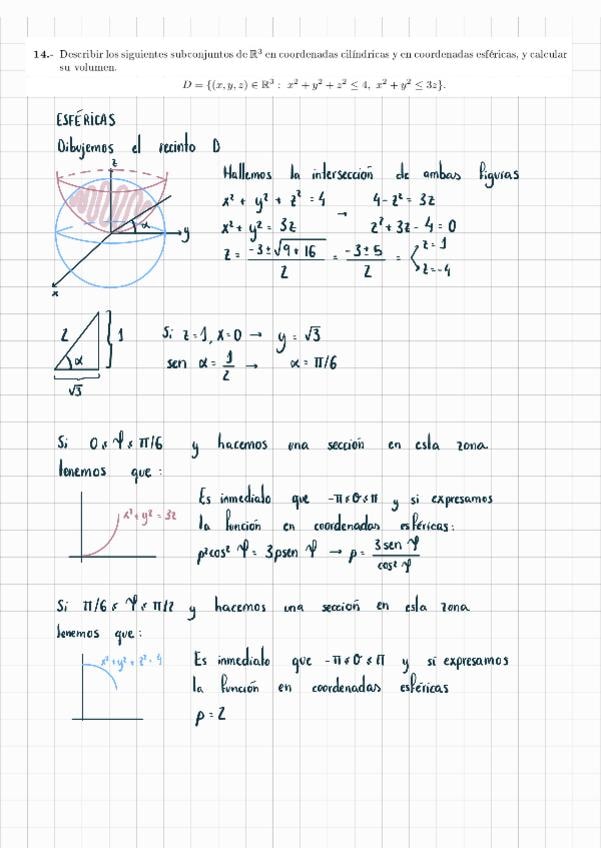 14.- Describir los siguientes subconjuntos de ℝ³ en coordenadas cilíndricas y en coordenadas esféricas, y calcular
su volumen.
D = {(x, y, z) ∈ ℝ³ : x² + y² + z² ≤ 4, x² + y² ≤ 3z}.
ESFÉRICAS
Dibujemos el recinto D
z
α
y
x
Hallemos la intersección de ambas figuras
x² + y² + z² = 4 → 4 - z² = 3z
x² + y² = 3z z² + 3z - 4 = 0
z = (-3 ± √(9 + 16))/2 = (-3 ± 5)/2 = < z = 1
z = -4
2 α 1
√3
Si z = 1, x = 0 → y = √3
sen α = 1/2 → α = π/6
Si 0 ≤ Ψ ≤ π/6 y hacemos una sección en esta zona
tenemos que :
x² + y² = 3z
Es inmediato que -π ≤ θ ≤ π y si expresamos
la función en coordenadas esféricas:
ρ² cos² Ψ = 3ρ sen Ψ → ρ = 3 sen Ψ / cos² Ψ
Si π/6 ≤ Ψ ≤ π/2 y hacemos una sección en esta zona
tenemos que :
x² + y² + z² = 4
Es inmediato que -π ≤ θ ≤ π y si expresamos
la función en coordenadas esféricas
ρ = 2